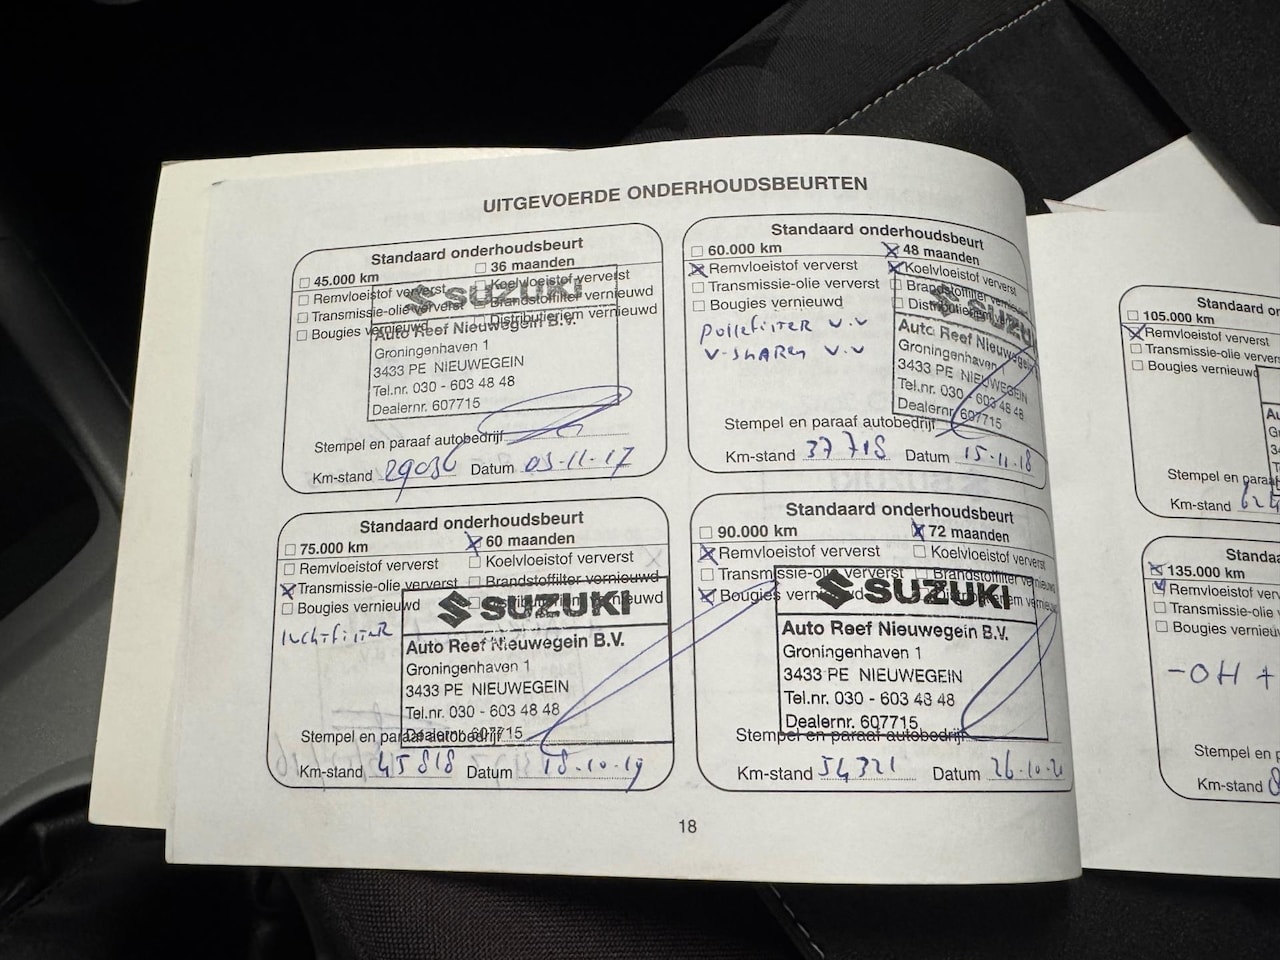 UITGEVOERDE ONDERHOUDSBEURTEN
Standaard onderhoudsbeurt
45.000 km
36 maanden
Remvloeistof ververst
Koelvloeistof ververst
Transmissie-olie ververst
Brandstoffilter vernieuwd
Bougies vernieuwd
Distributieriem vernieuwd
SUZUKI
Auto Reef Nieuwegein B.V.
Groningenhaven 1
3433 PE NIEUWEGEIN
Tel.nr. 030 - 603 48 48
Dealernr. 607715
Stempel en paraaf autobedrijf
Km-stand 29036 Datum 03-11-17
Standaard onderhoudsbeurt
60.000 km
48 maanden
Remvloeistof ververst
Koelvloeistof ververst
Transmissie-olie ververst
Brandstoffilter vernieuwd
Bougies vernieuwd
pollefilter v.v
v-snaren v.v
SUZU
Auto Reef Nieuwegein
Groningenhaven 1
3433 PE NIEUWEGEIN
Tel.nr. 030 - 603 48 48
Dealernr. 607715
Stempel en paraaf autobedrijf
Km-stand 37718 Datum 15-11-18
Standaard onderhoudsbeurt
75.000 km
60 maanden
Remvloeistof ververst
Koelvloeistof ververst
Transmissie-olie ververst
Brandstoffilter vernieuwd
Bougies vernieuwd
luchtfilter
SUZUKI
Auto Reef Nieuwegein B.V.
Groningenhaven 1
3433 PE NIEUWEGEIN
Tel.nr. 030 - 603 48 48
Dealernr. 607715
Stempel en paraaf autobedrijf
Km-stand 45818 Datum 18-10-19
Standaard onderhoudsbeurt
90.000 km
72 maanden
Remvloeistof ververst
Koelvloeistof ververst
Transmissie-olie ververst
Brandstoffilter vernieuwd
Bougies vernieuwd
SUZUKI
Auto Reef Nieuwegein B.V.
Groningenhaven 1
3433 PE NIEUWEGEIN
Tel.nr. 030 - 603 48 48
Dealernr. 607715
Stempel en paraaf autobedrijf
Km-stand 54321 Datum 26-10-20
18
Standaard o
105.000 km
Remvloeistof ververst
Transmissie-olie ververs
Bougies vernieuwd
Stempel en paraaf
Km-stand
Standaa
135.000 km
Remvloeistof ververst
Transmissie-olie
Bougies vernieuw
-OH +
Stempel en p
Km-stand